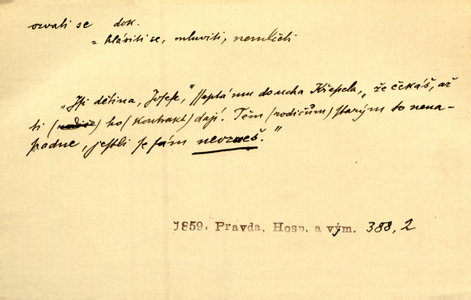 ozvati se dok.
= hlásiti se, mluviti, nemlčeti
„Jsi dětina, Josefe,“ šeptá mu do ucha Křepela, „že čekáš, až
ti (rodiče) ho (kontrakt) dají. Těm (rodičům) starým to nena-
padne, jestli se sám neozveš.“
1859. Pravda, Hosp. a vým. 388, 2